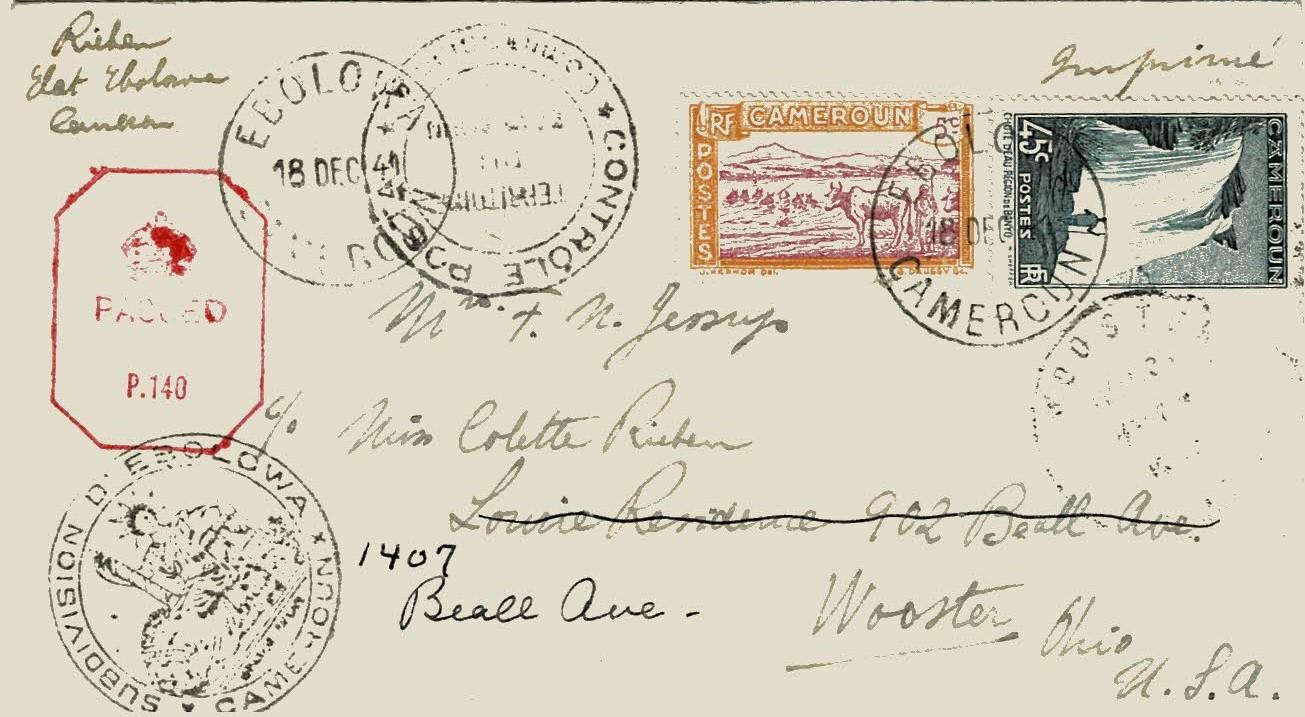 Rieben
Elat Ebolowa
Imprimé
EBOLOWA
18 DEC 41
CAMEROUN
CONTRÔLE POSTAL
TERRITOIRE DU
RF CAMEROUN 5c
POSTES
EBOLOWA
18 DEC
CAMEROUN
CAMEROUN
45c POSTES RF
PASSED
P.140
Mrs. F. N. Jessup
c/o Miss Colette Rieben
Residence 902 Beall Ave.
1407
Beall Ave -
Wooster
Ohio
U.S.A.
SUBDIVISION D'EBOLOWA
CAMEROUN